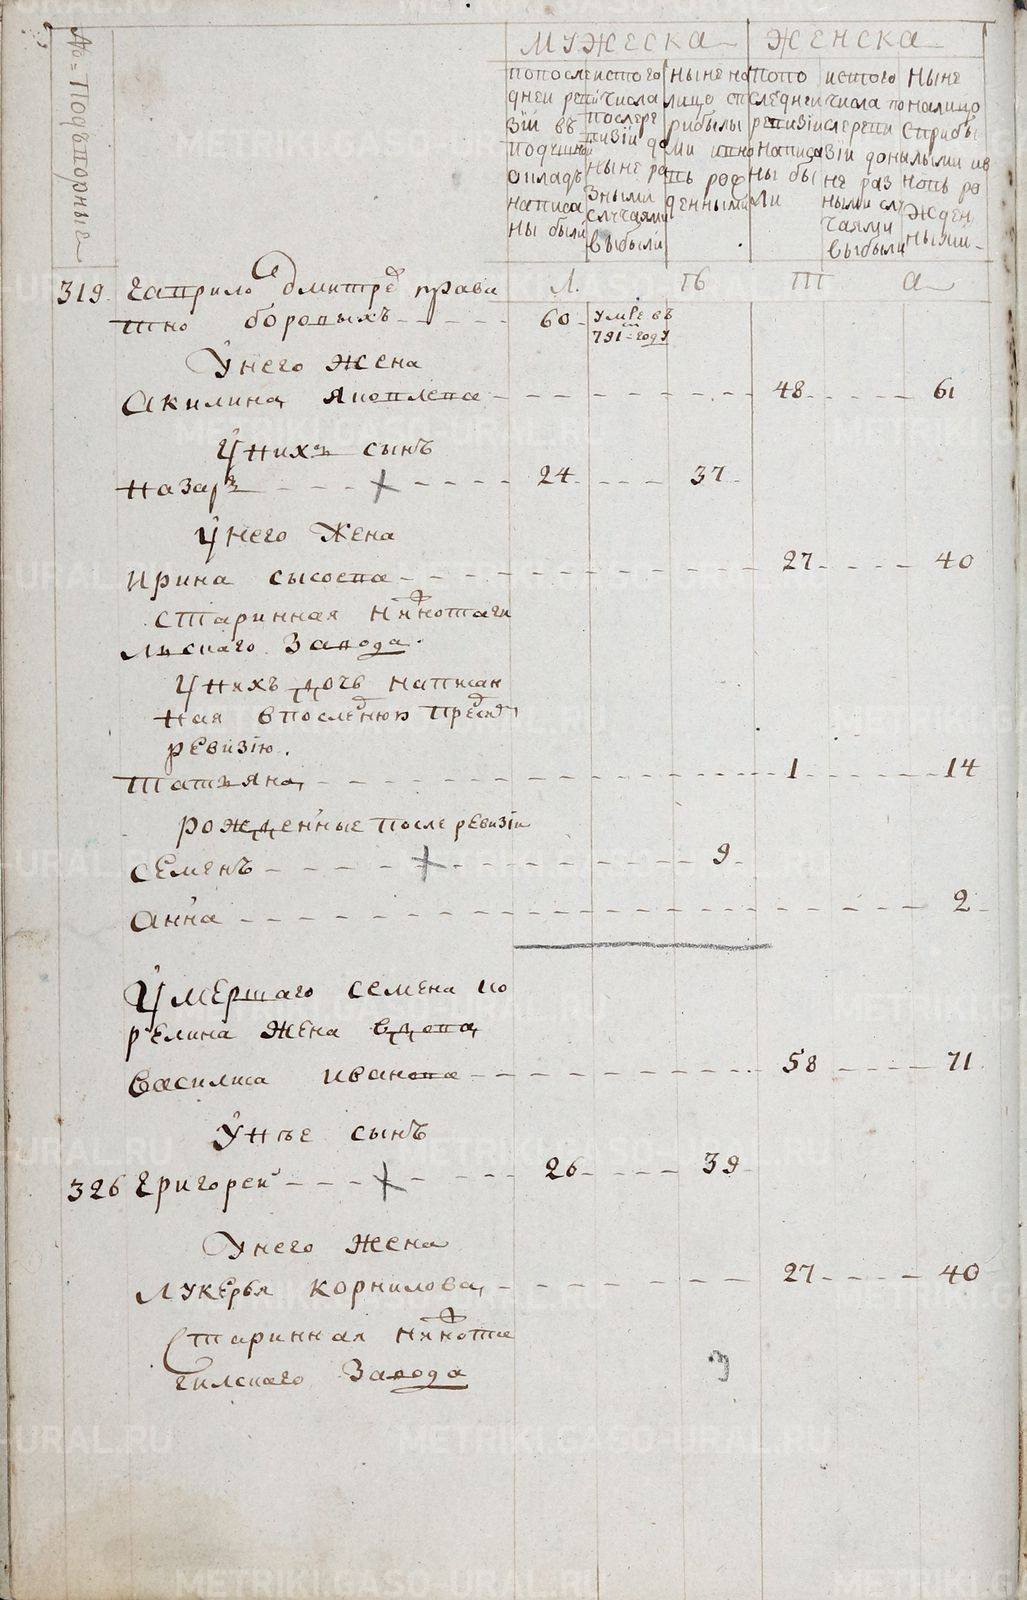 № = Подъворные
МУЖЕСКА
ЖЕНСКА
попосле
дней реви
зіи въ
подушной
окладъ
написа
ны были
исътого
числа
послере
визіи до
ныне ра
зными
случаями
выбыли
ныне на
лицо сп
рибылы
ми ивно
вь рож
денными
попо
следней
ревизіи
написа
ны бы
ли
истого
числа по
слереви
зіи до
не раз
ными слу
чаями
выбыли
Ныне
налицо
сприбы
лыми ив
новь ро
жден
ными
319. Гаврило Дмитрев права
тно боровыхъ 60 умре въ
791 = году
У него жена
Акилина Яковлева 48 61
У нихъ сынъ
Назаръ 24 37
У него жена
Ирина Сысоева 27 40
старинная Нижнотаги
льскаго завода.
У нихъ дочь написан
ная впоследнюю пред
ревизію.
Татьяна 1 14
рожденные после ревизіи
Семенъ 9
Анна 2
Умершаго Семена Ко
релина жена вдова
Василиса Иванова 58 71
У нее сынъ
326 Григорей 26 39
У него жена
Лукерья Корнилова 27 40
Старинная Нижнота
гилскаго Завода
METRIKI.GASO-URAL.RU